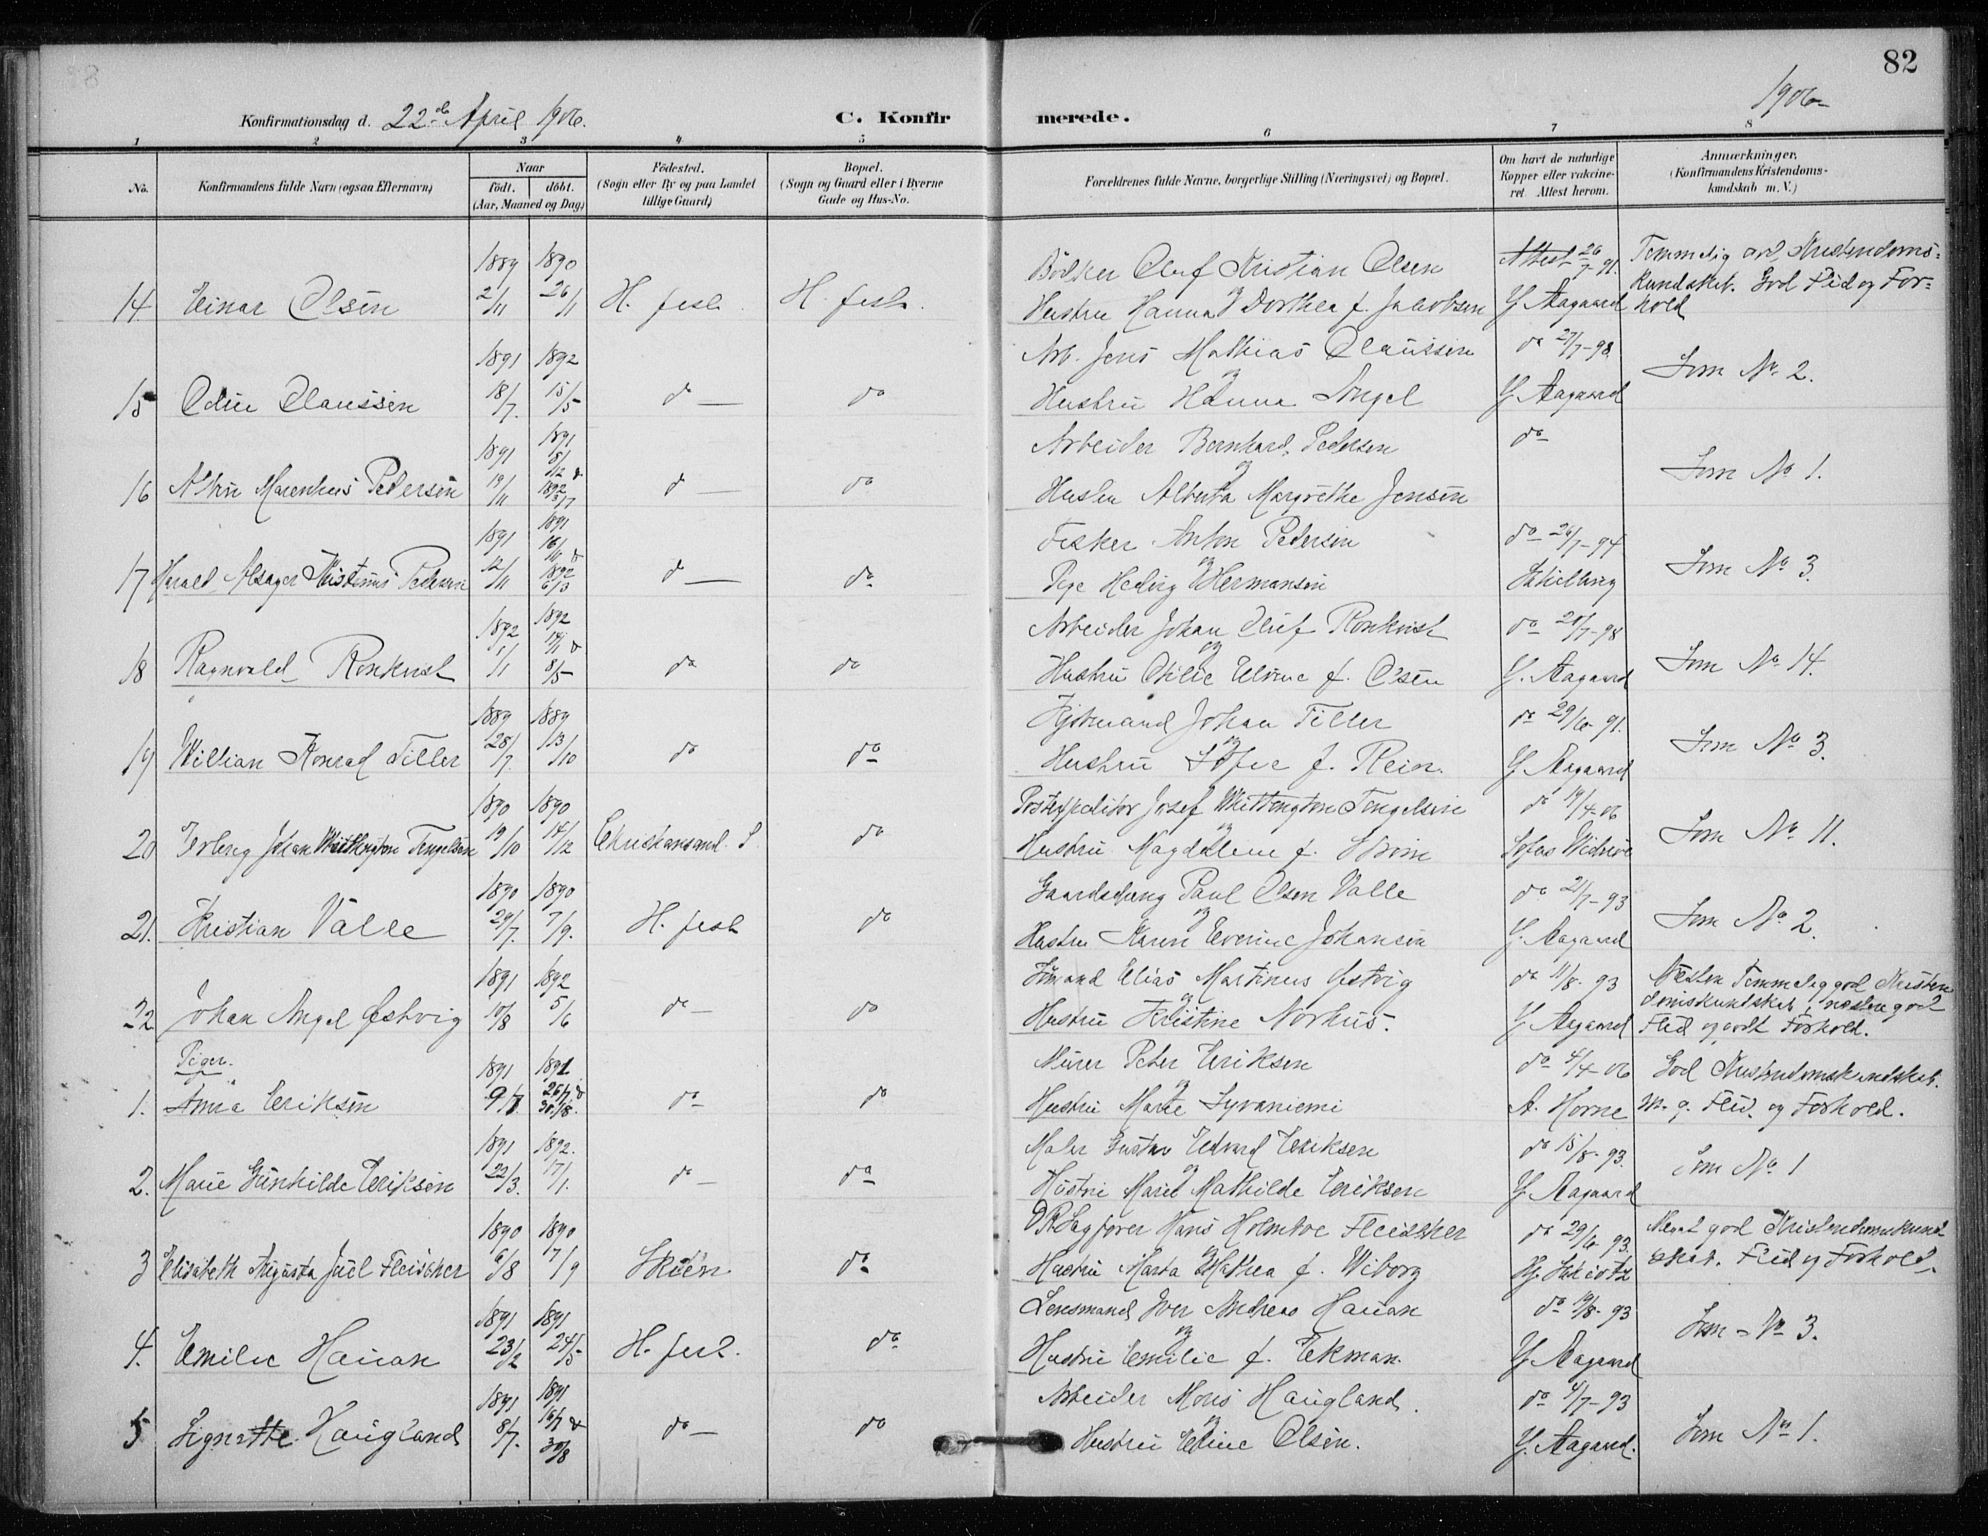 82
1906
Konfirmationsdag d. 22de April 1906. C. Konfirmerede.
1 2 3 4 5 6 7 8
No. Konfirmandens fulde Navn (ogsaa Efternavn)
Naar
født. døbt.
(Aar, Maaned og Dag)
Fødested.
(Sogn eller By og paa Landet
tillige Gaard)
Bopæl.
(Sogn og Gaard eller i Byerne
Gade og Hus-No.
Forældrenes fulde Navne, borgerlige Stilling (Næringsvei) og Bopæl.
Om havt de naturlige
Kopper eller vaccine-
ret Attest herom.
Anmærkninger.
(Konfirmandens Kristendoms-
kundskab m. V.)
1889 1890 Bødker Oluf Kristian Olsen Attest 26/7 91. Temmelig god Kristendoms-
14 Einar Olsen 2/11 26/1 H. fest H. fest. og Hustru Hanna Dorthea f. Jakobsen Y. Aagaard kundskab. God Flid og For-
hold
1891 1892 Arb. Jens Mathias Claussen do 27/7-98
15 Odin Claussen 18/7. 15/5 do — do og Hustru Hanna Angel Y. Aagaard Som No. 2.
1891 1891 Arbeider Bernhard Pedersen do
16 Marenhus Pedersen 19/11 do — do og Hustru Alberta Margrethe Jensen Som No 1.
1891 1891 Fisker Anton Pedersen do 26/7-94
17 Harald Kristinus Pedersen 12/11 1892 6/3 do — do og Pige Hedvig Hermansen Schilling Som No 3.
1892 1892 Arbeider Johan Oluf Ronkvist do 28/7-98
18 Ragnvald Ronkvist 1/1 8/5 do do og Hustru Otilie Elvine f. Olsen Y. Aagaard Som No 14.
1889 1889 Johan Tiller do 29/6 91.
19 Willian Konrad Tiller 28/7. 13/10 do do og Hustru Sofie f. Rein. Y. Aagaard Som No 3.
1890 1890 Postexpeditør Josef Whittington Tengelsen do 19/4-06
20 Erling Johan Whittington Tengelsen 19/10 14/12 Christiansand. S. do og Hustru Magdalene f. Sofus Widerøe Som No 11.
1890 1890 Gaardsdreng Paul Olsen Valle do 21/7-93
21. Kristian Valle 29/7. 7/9. H. fest do og Hustru Karen Everine Johansen Y. Aagaard Som No 2.
1891 1892 Sømand Elias Martinus Østvig do 11/8. 93 Næsten Temmelig god Kristen
22 Johan Angel Østvig 10/8 5/6 do — do og Hustru Kristine Norhus. Y. Aagaard domskundskab, næsten god
Flid og godt Forhold.
Piger.
1891 1891. Murer Peter Eriksen do 4/4-06 God Kristendomskundskab.
1. Anna Eriksen 9/7 26/7 & 30/8. do do og Hustru Marie Syvaniemi A. Horne M. g. Flid. og Forhold.
1891 1892. Maler Gustav Edvard Eriksen do 15/8-93.
2. Marie Gunhilde Eriksen 22/3. 17/1. do — do og Hustru Marie Mathilde Eriksen Y. Aagaard Som No 1
1890 1890 O.R.Sagfører Hans Holmboe Fleischer do 29/6 93. Meget god Kristendomskund
3 Elisabeth Augusta Juel Fleischer 6/8 17/9 Skien do og Hustru Marta Mathea f. Wiborg Hj. Schiøtz skab. Flid og Forhold.
1891 1891 Lensmand Iver Andreas Hauan do 19/8. 93
4. Emilie Hauan 23/2 24/5 H. fest. do og Hustru Emilie f. Ekman. Y. Aagaard Som No 3.
1891 1891 Arbeider Mons Haugland. do 4/7-93
5 Signe Haugland 8/7. 16/7 & 30/8 do — do og Hustru Eline Olsen. Y. Aagaard. Som No 1.